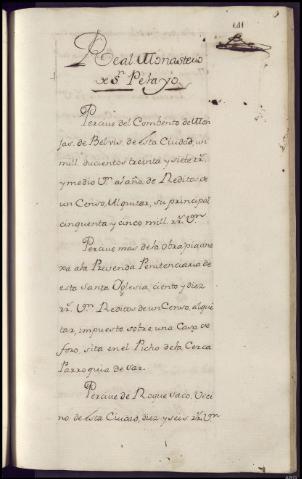 181
Real Monasterio
de Sn. Pelayo
Percive del Combento de Mon
jas, de Belvis de esta Ciudad, un
mill ducientos treinta y siete rr.
y medio Vn. al año de Reditos de
un Censo, al quitar, su principal
cinquenta y cinco mill rr. Vn.
Percive mas de la obra pia, ane
xa a la Prevenda Penitenciaria de
esta Santa Yglesia, ciento y diez
rr. Vn. Reditos de un Censo, al qui
tar, impuesto sobre una Casa de
foro, sita en el Picho de la Cerca
Parroquia de Sar.
Percive de Roque Vaco, Veci
no de esta Ciudad, diez y seis rr. Vn